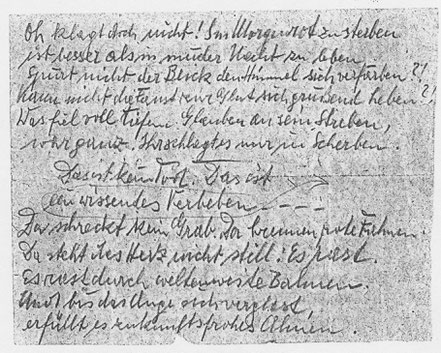 Oh klagt doch nicht! Im Morgenrot zu sterben
ist besser als in müder Nacht zu leben.
Spürt nicht der Blick den Himmel sich verfärben?!
Kann nicht die Faust zur Glut sich grüßend heben?!
Was fiel voll tiefem Glauben an sein Streben,
war ganz. Ihr schlagt es nur zu Scherben.
Das ist kein Tod. Das ist
ein wissendes Verbeben - - - -
Da schreckt kein Grab. Da brennen rote Fahnen.
Da steht das Herz nicht still: Es rast.
Es rast durch weltenweite Bahnen.
Und bis das Auge sich verglast,
erfüllt es zukunftsfrohes Ahnen.